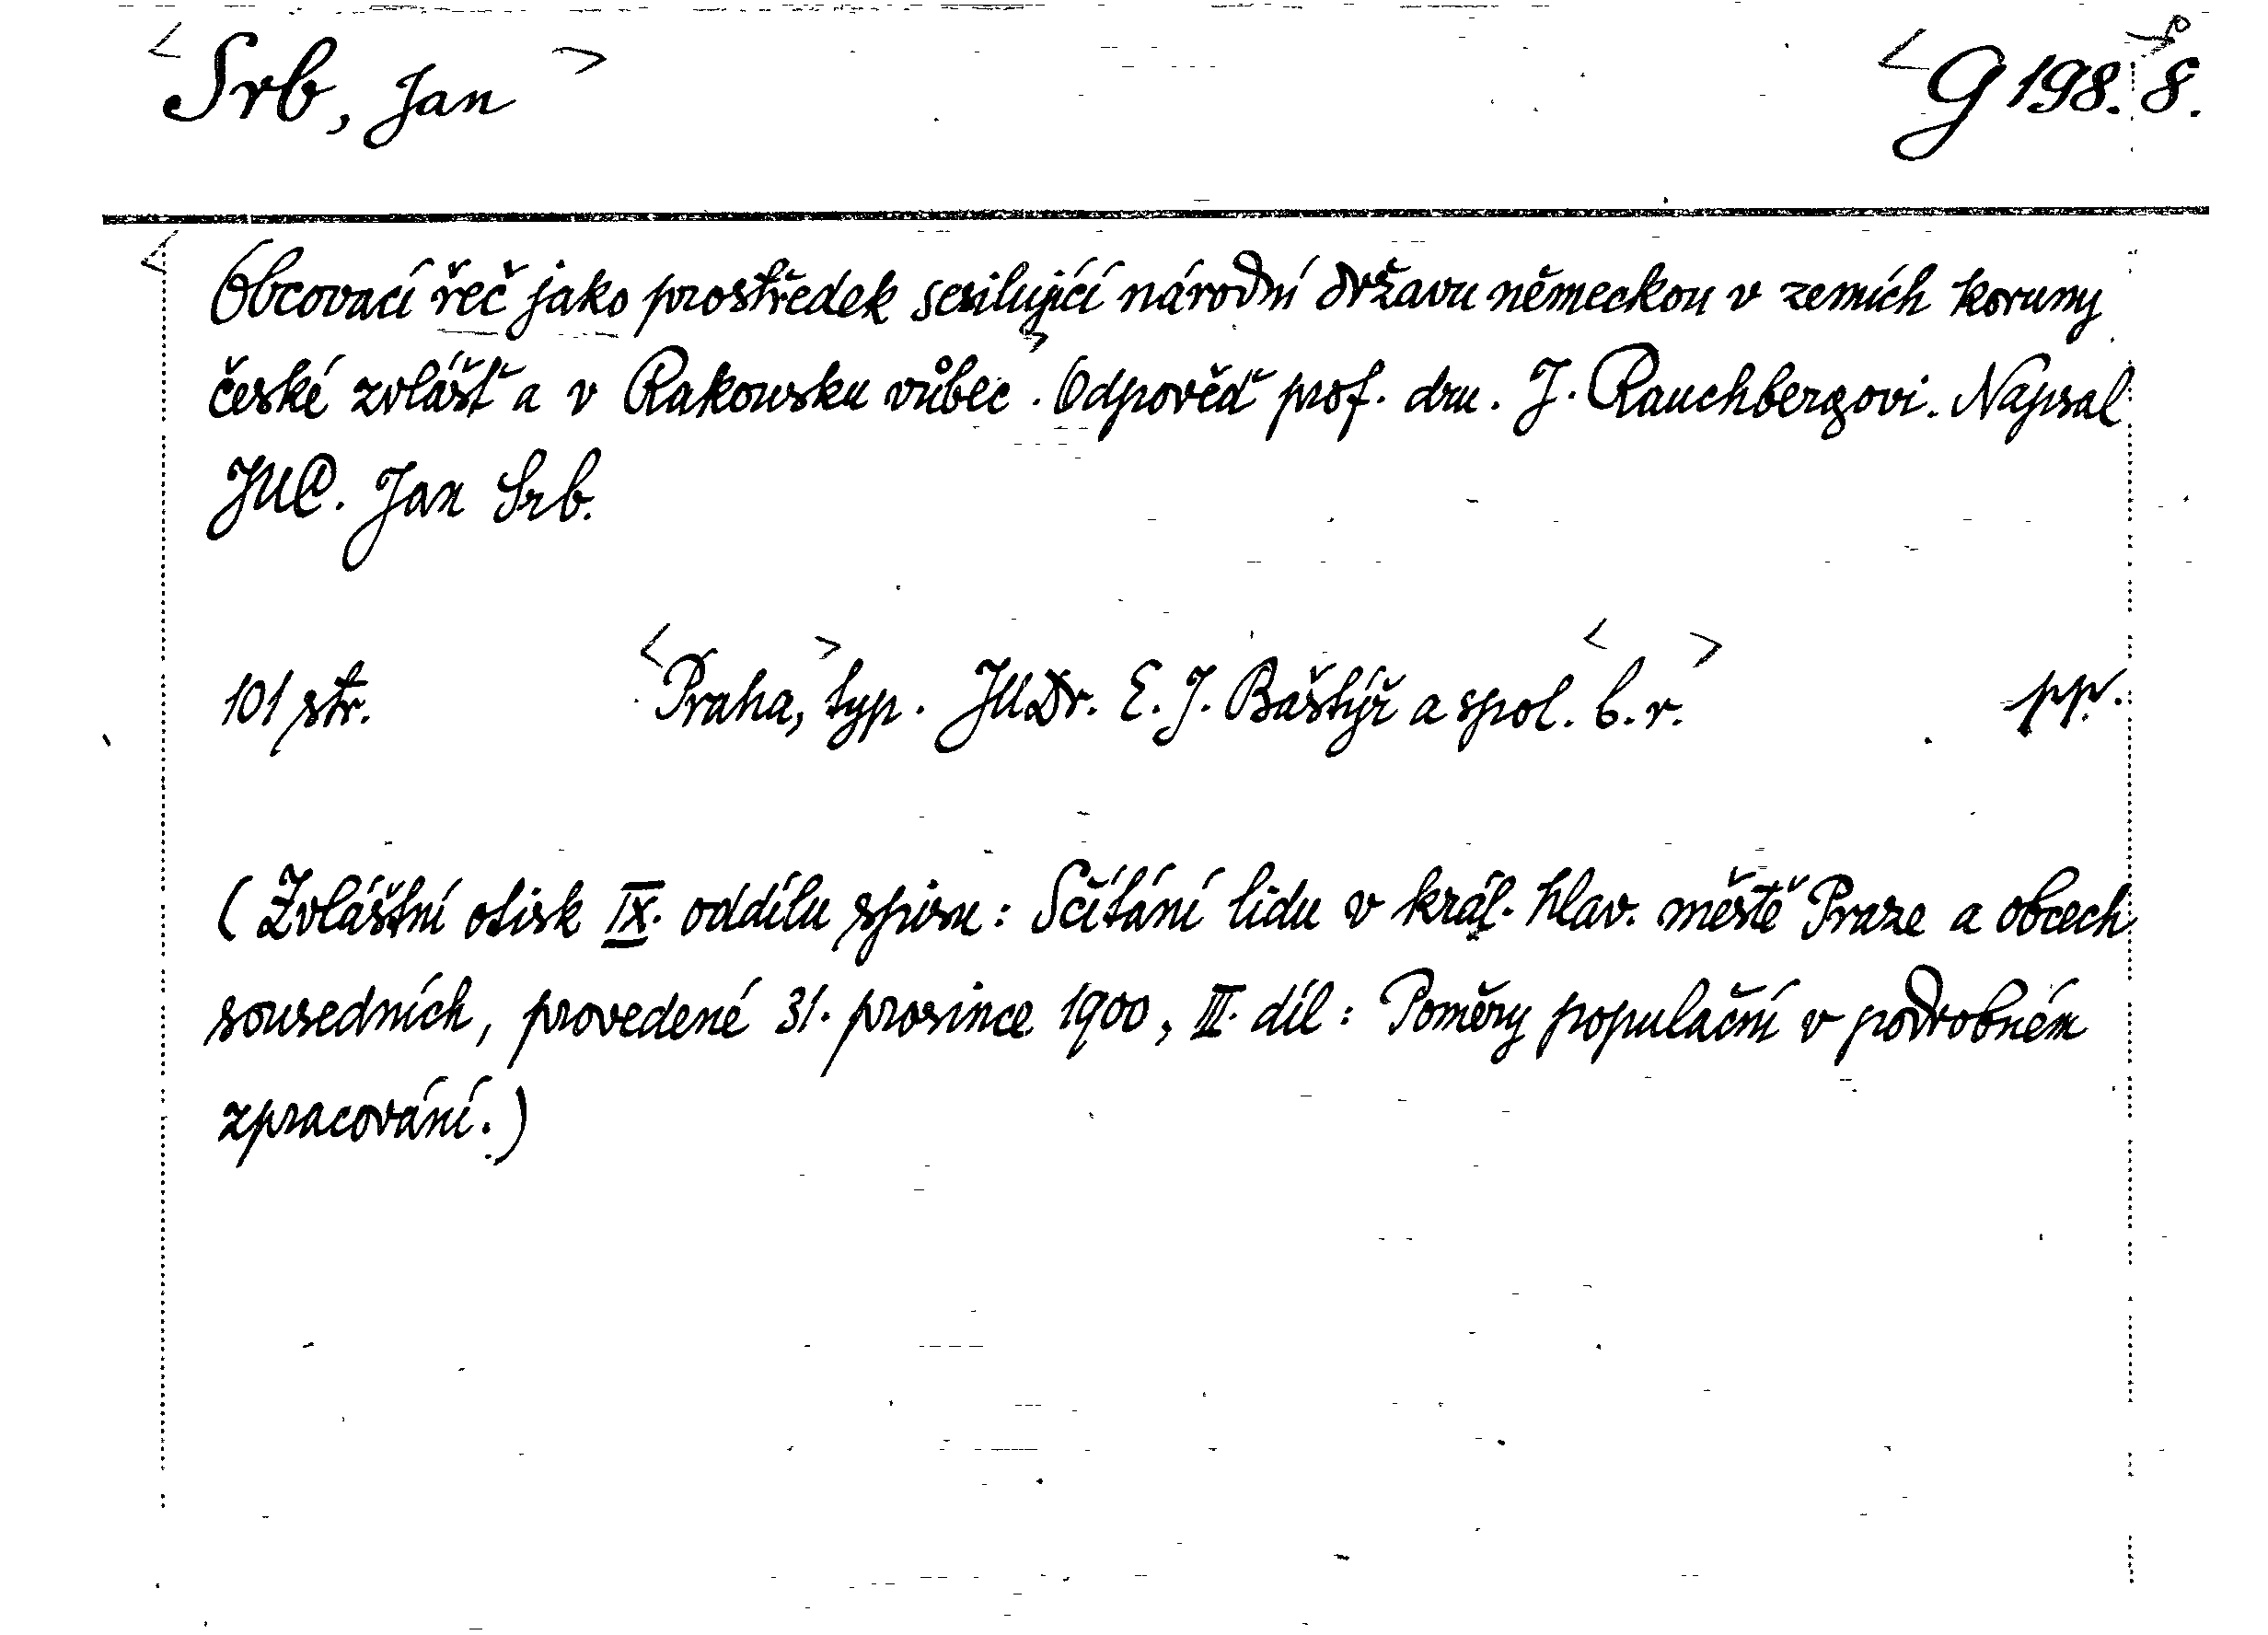 Srb, Jan
G 198. 8.
Obcovací řeč jako prostředek sesilující národní državu německou v zemích koruny
české zvlášť a v Rakousku vůbec. Odpověď prof. dru. J. Rauchbergovi. Napsal
JUC. Jan Srb.
101 str. Praha, typ. JUDr. E. J. Baštýř a spol. b. r. pp.
(Zvláštní otisk IX. oddílu spisu: Sčítání lidu v král. hlav. městě Praze a obcech
sousedních, provedené 31. prosince 1900, III. díl: Poměry populační v podrobném
zpracování.)